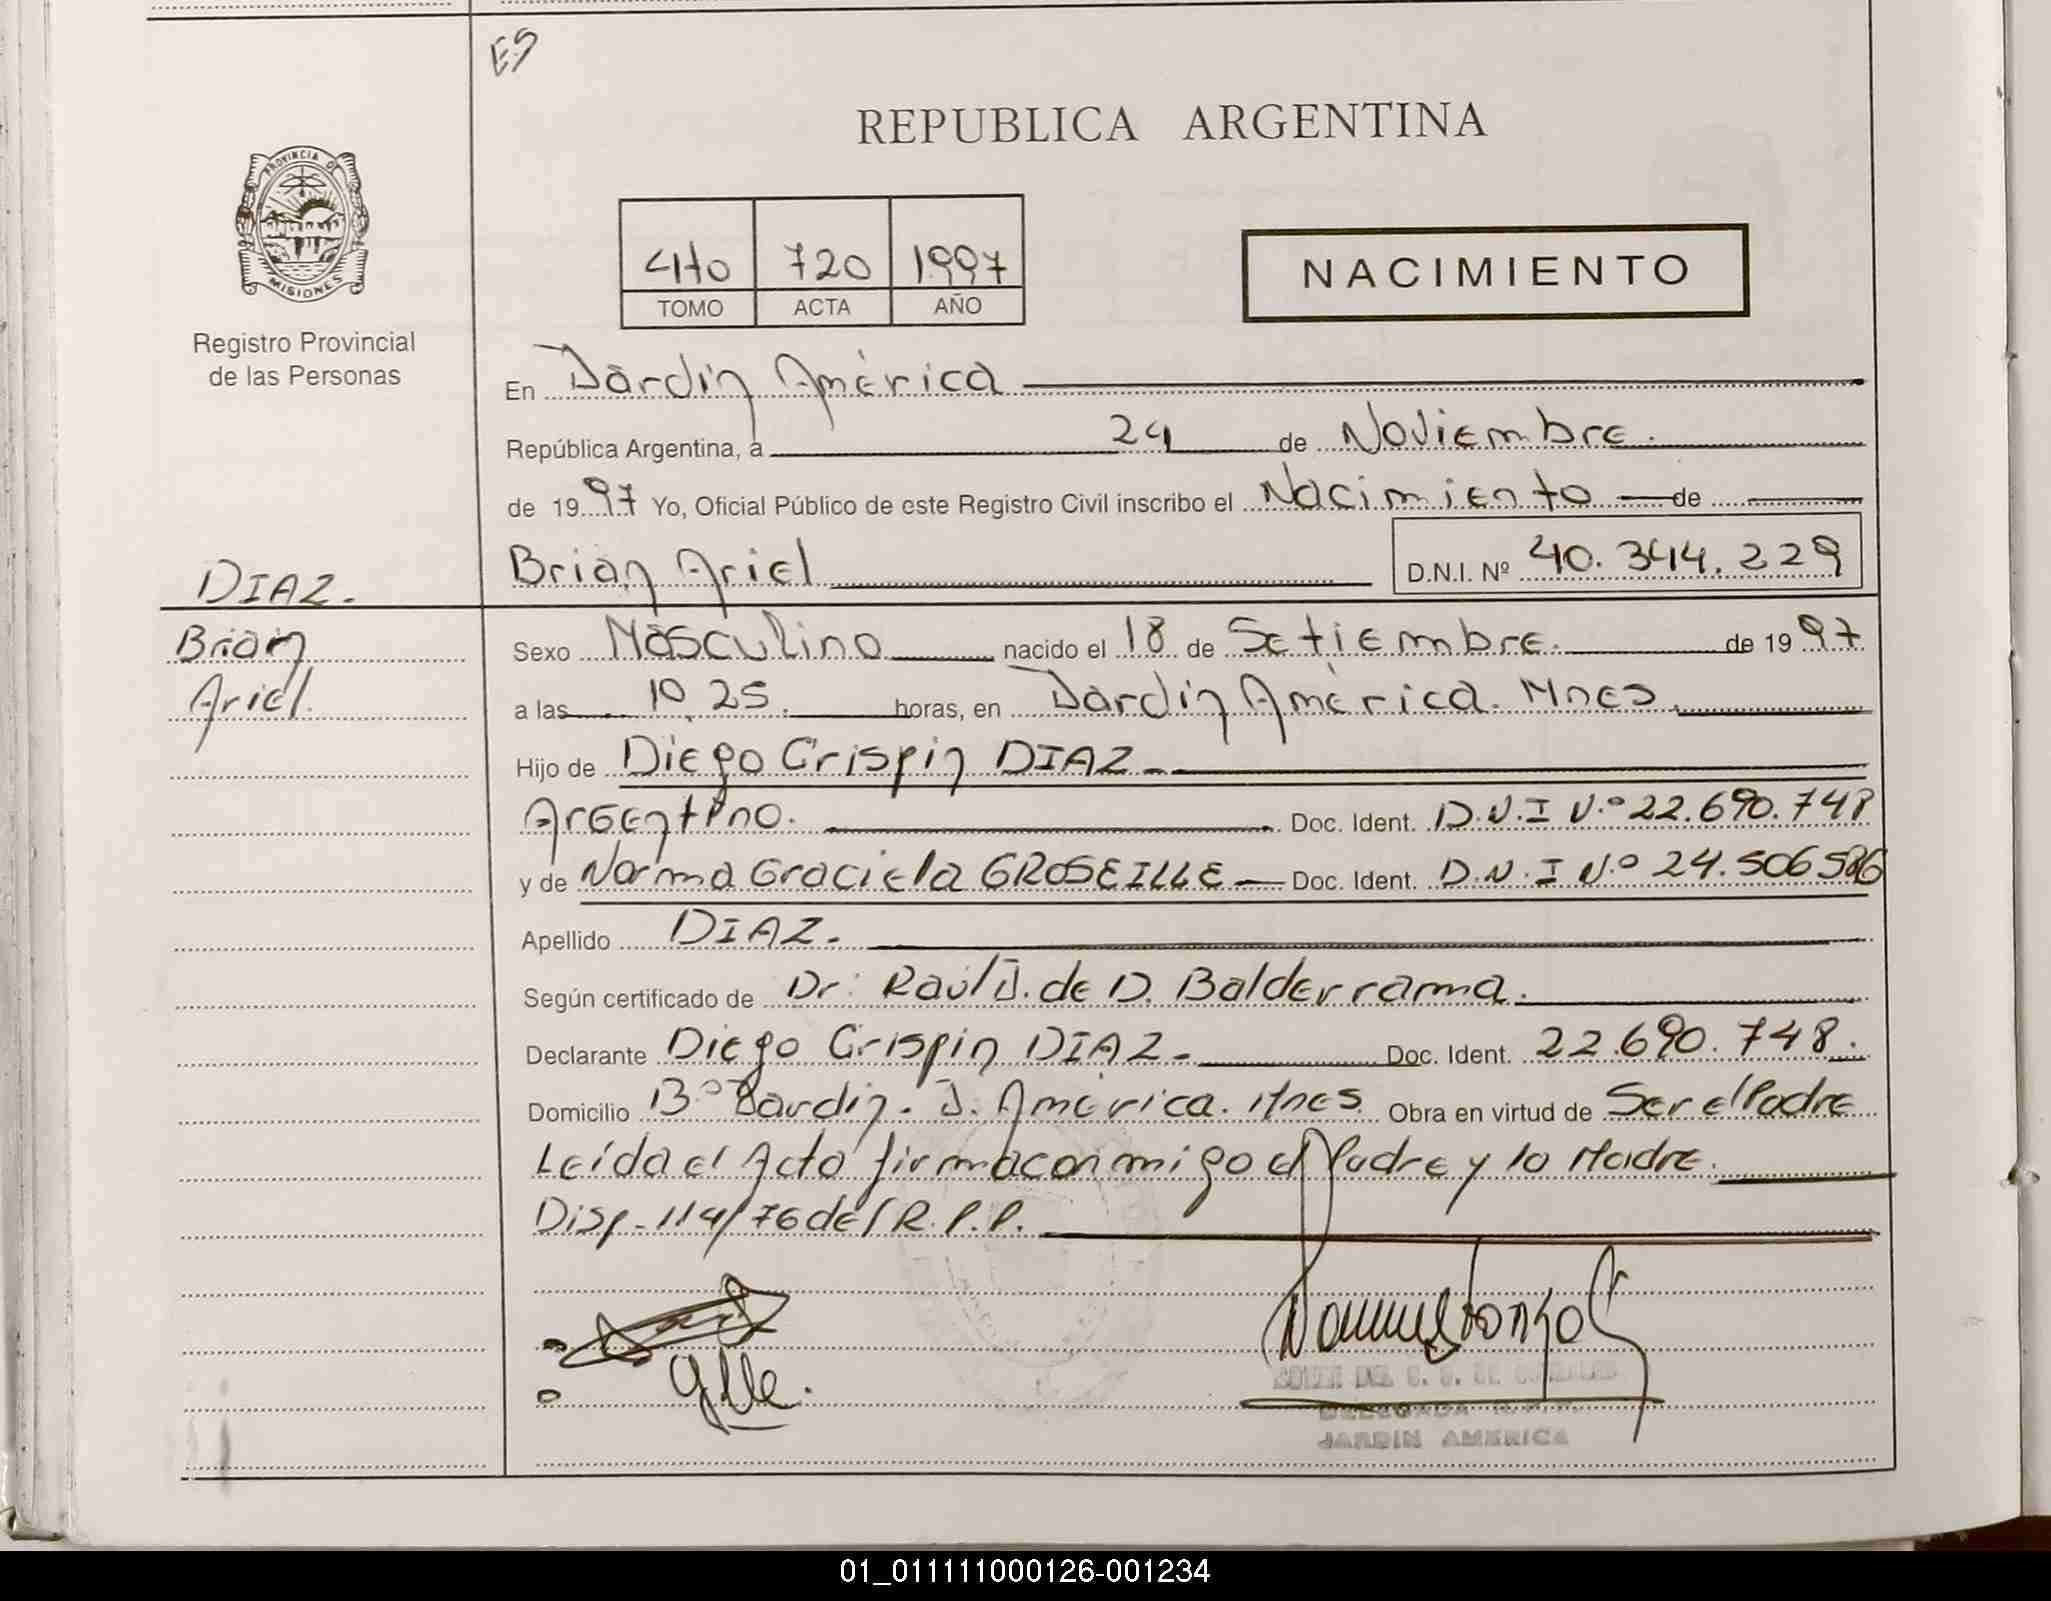 ES
REPUBLICA ARGENTINA
PROVINCIA DE
MISIONES
Registro Provincial
de las Personas
4to 720 1997
TOMO ACTA AÑO
NACIMIENTO
En Jardín América
República Argentina, a 24 de Noviembre.
de 1997 Yo, Oficial Público de este Registro Civil inscribo el Nacimiento de
DIAZ.
Brian Ariel D.N.I. Nº 40.344.229
Brian
Ariel.
Sexo Masculino nacido el 18 de Setiembre. de 1997
a las 10,25. horas, en Jardín América. Mnes.
Hijo de Diego Crispin DIAZ
Argentino. Doc. Ident. D.N.I N.º 22.690.748
y de Norma Graciela GROSEILLE Doc. Ident. D.N.I N.º 24.506586
Apellido DIAZ.
Según certificado de Dr: Raúl J. de D. Balderrama.
Declarante Diego Crispin DIAZ Doc. Ident. 22.690.748.
Domicilio Bº Jardín. J. América. Mnes. Obra en virtud de Ser el Padre
Leída el Acta firma conmigo el Padre y la Madre.
Disp. 114/76 del R.P.P.
DELEGADA R.P.P.
JARDIN AMERICA
01_011111000126-001234